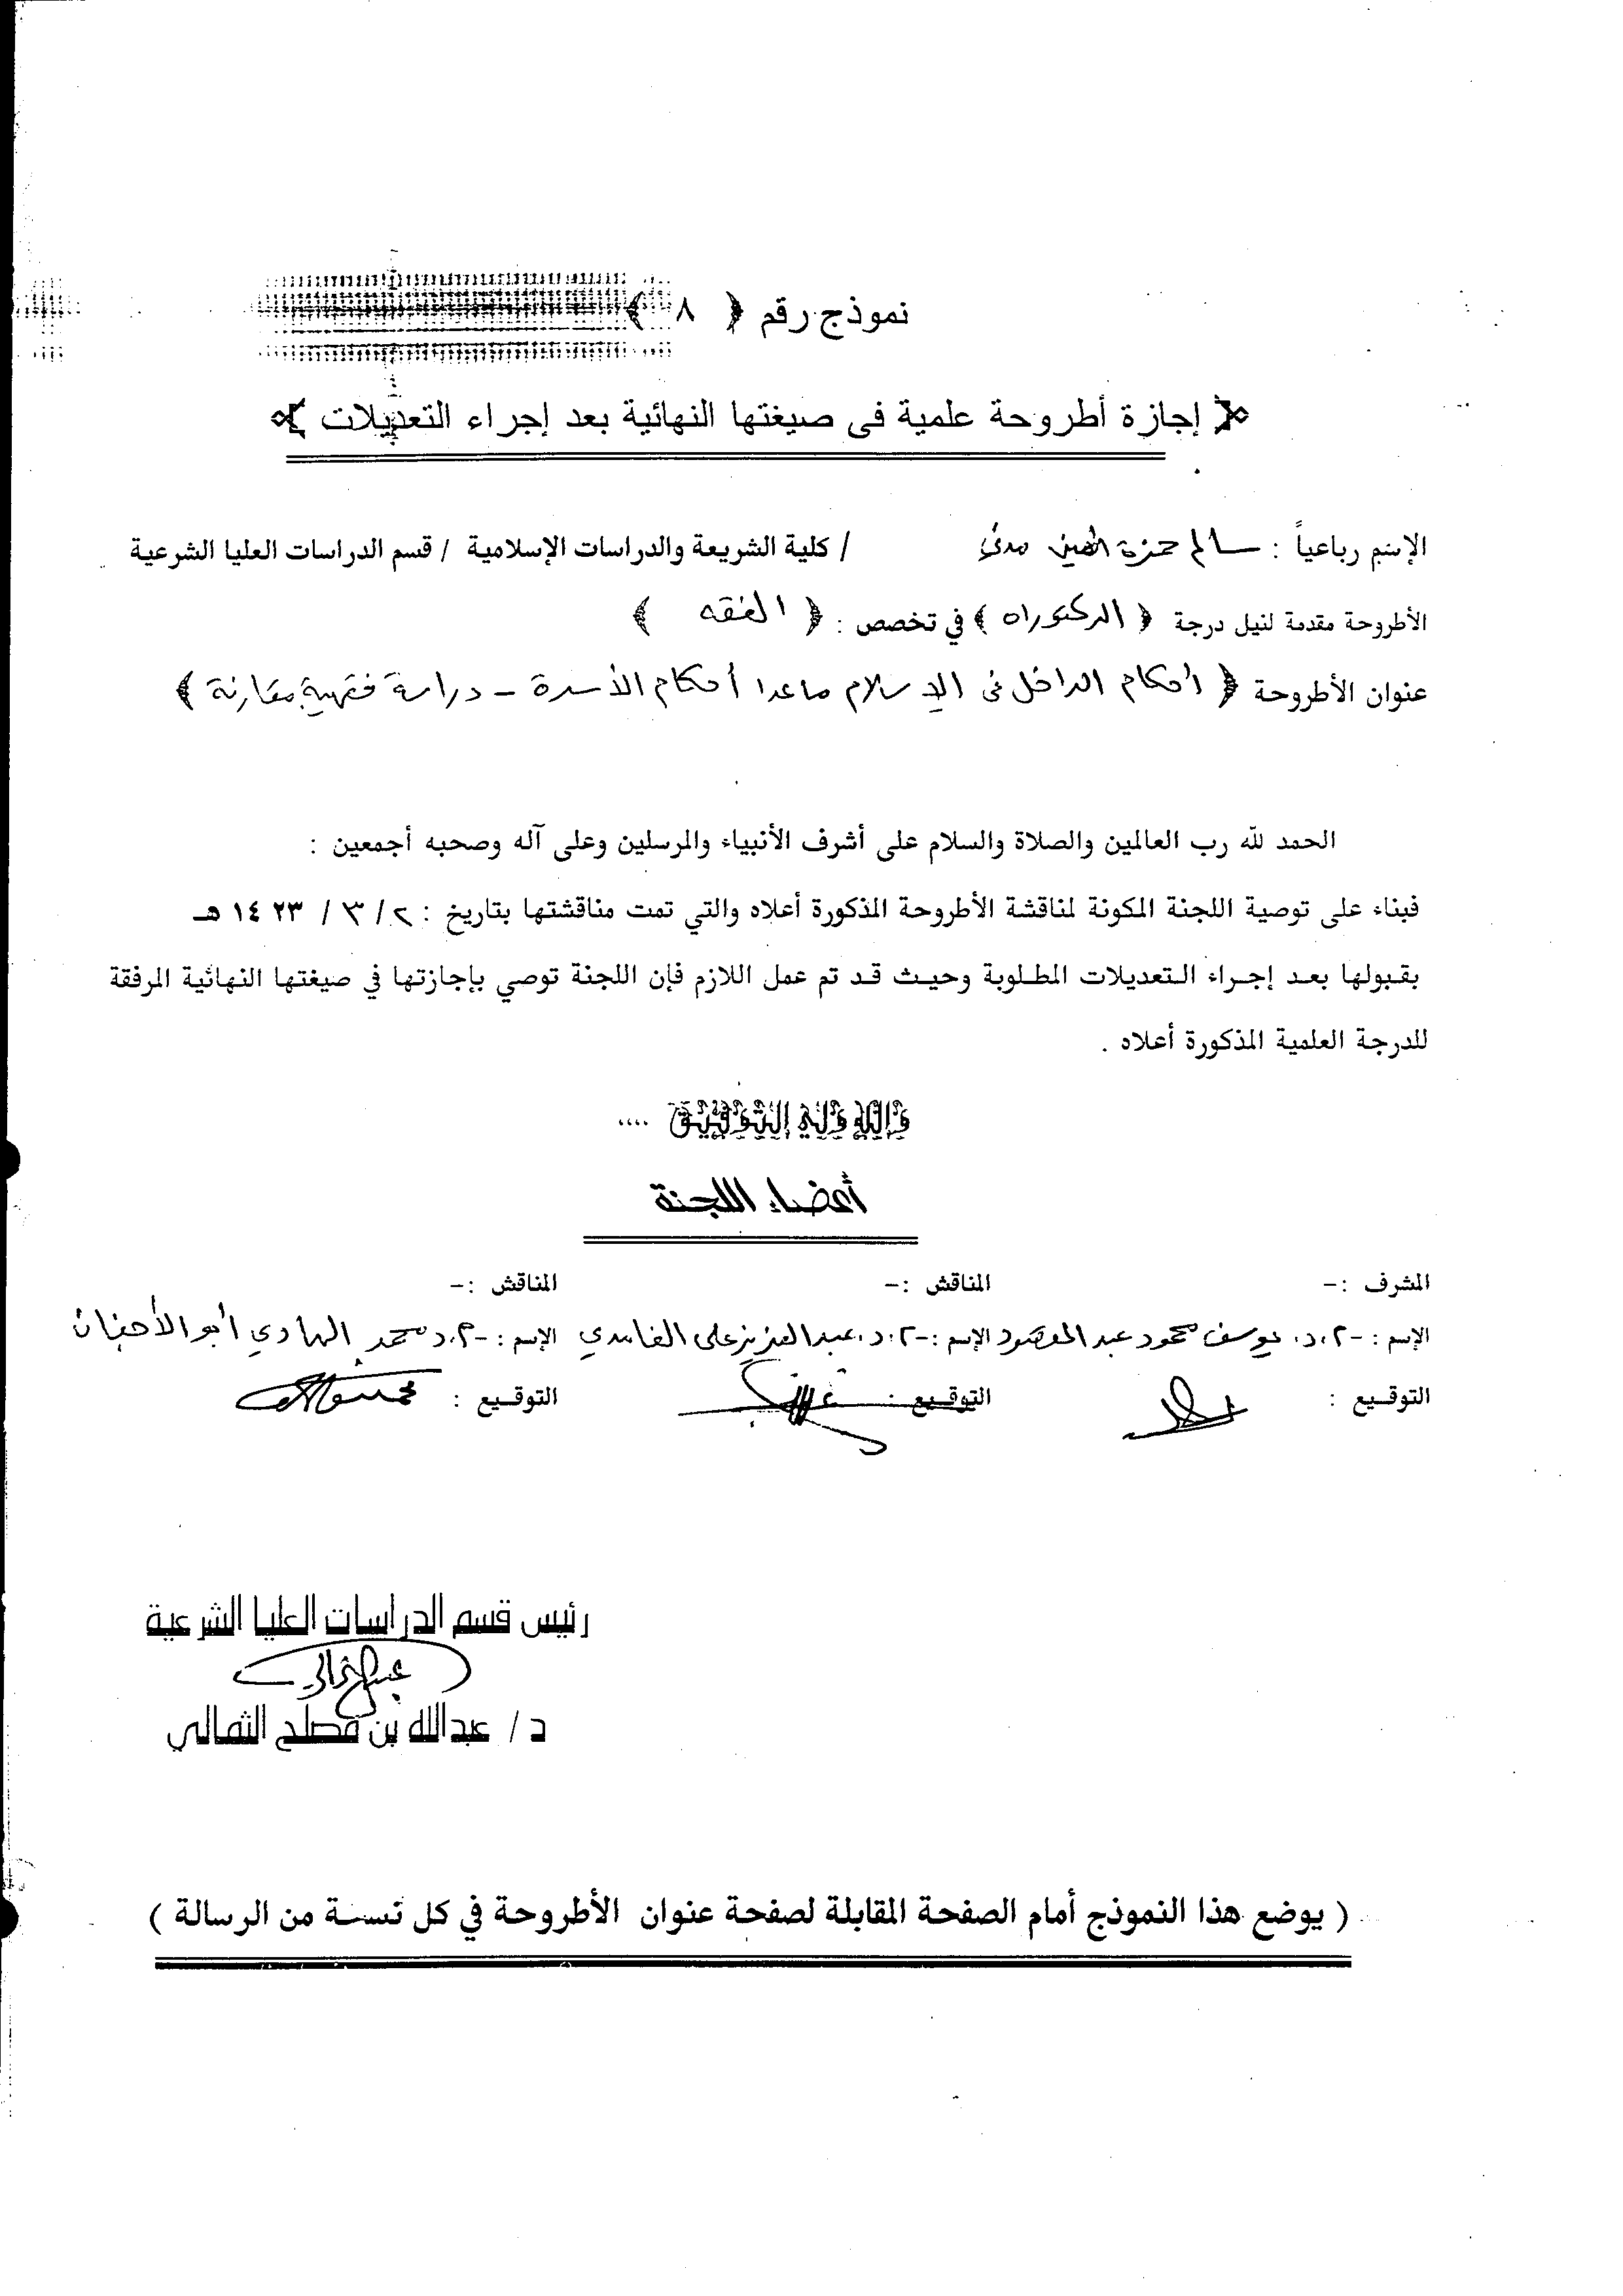 نموذج رقم ﴿ ٨ ﴾
﴿ إجازة أطروحة علمية فى صيغتها النهائية بعد إجراء التعديلات ﴾
الإسم رباعياً : سالم حمزة أمين مدني / كلية الشريعة والدراسات الإسلامية / قسم الدراسات العليا الشرعية
الأطروحة مقدمة لنيل درجة ﴿ الدكتوراه ﴾ في تخصص : ﴿ الفقه ﴾
عنوان الأطروحة ﴿ أحكام الداخل فى الإسلام ماعدا أحكام الأسرة – دراسة فقهية مقارنة ﴾
الحمد لله رب العالمين والصلاة والسلام على أشرف الأنبياء والمرسلين وعلى آله وصحبه أجمعين :
فبناء على توصية اللجنة المكونة لمناقشة الأطروحة المذكورة أعلاه والتي تمت مناقشتها بتاريخ : ٢ / ٣ / ١٤٢٣ هـ
بقبولها بعد إجراء التعديلات المطلوبة وحيث قد تم عمل اللازم فإن اللجنة توصي بإجازتها في صيغتها النهائية المرفقة
للدرجة العلمية المذكورة أعلاه .
والله ولي التوفيق ....
أعضاء اللجنة
المشرف :– المناقش :– المناقش :–
الإسم :– أ.د. يوسف محمود عبد المقصود الإسم :– أ.د. عبد العزيز علي الغامدي الإسم :– أ.د محمد الهادي أبو الأجفان
التوقيع : التوقيع : التوقيع :
رئيس قسم الدراسات العليا الشرعية
د / عبدالله بن مصلح الثمالي
( يوضع هذا النموذج أمام الصفحة المقابلة لصفحة عنوان الأطروحة في كل نسخة من الرسالة )